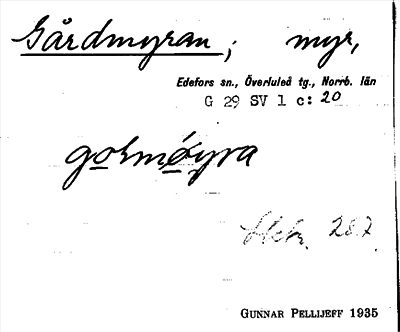 Gårdmyran; myr,
Edefors sn., Överluleå tg., Norrb. län
G 29 SV 1 c: 20
gormøyra
287
GUNNAR PELLIJEFF 1935